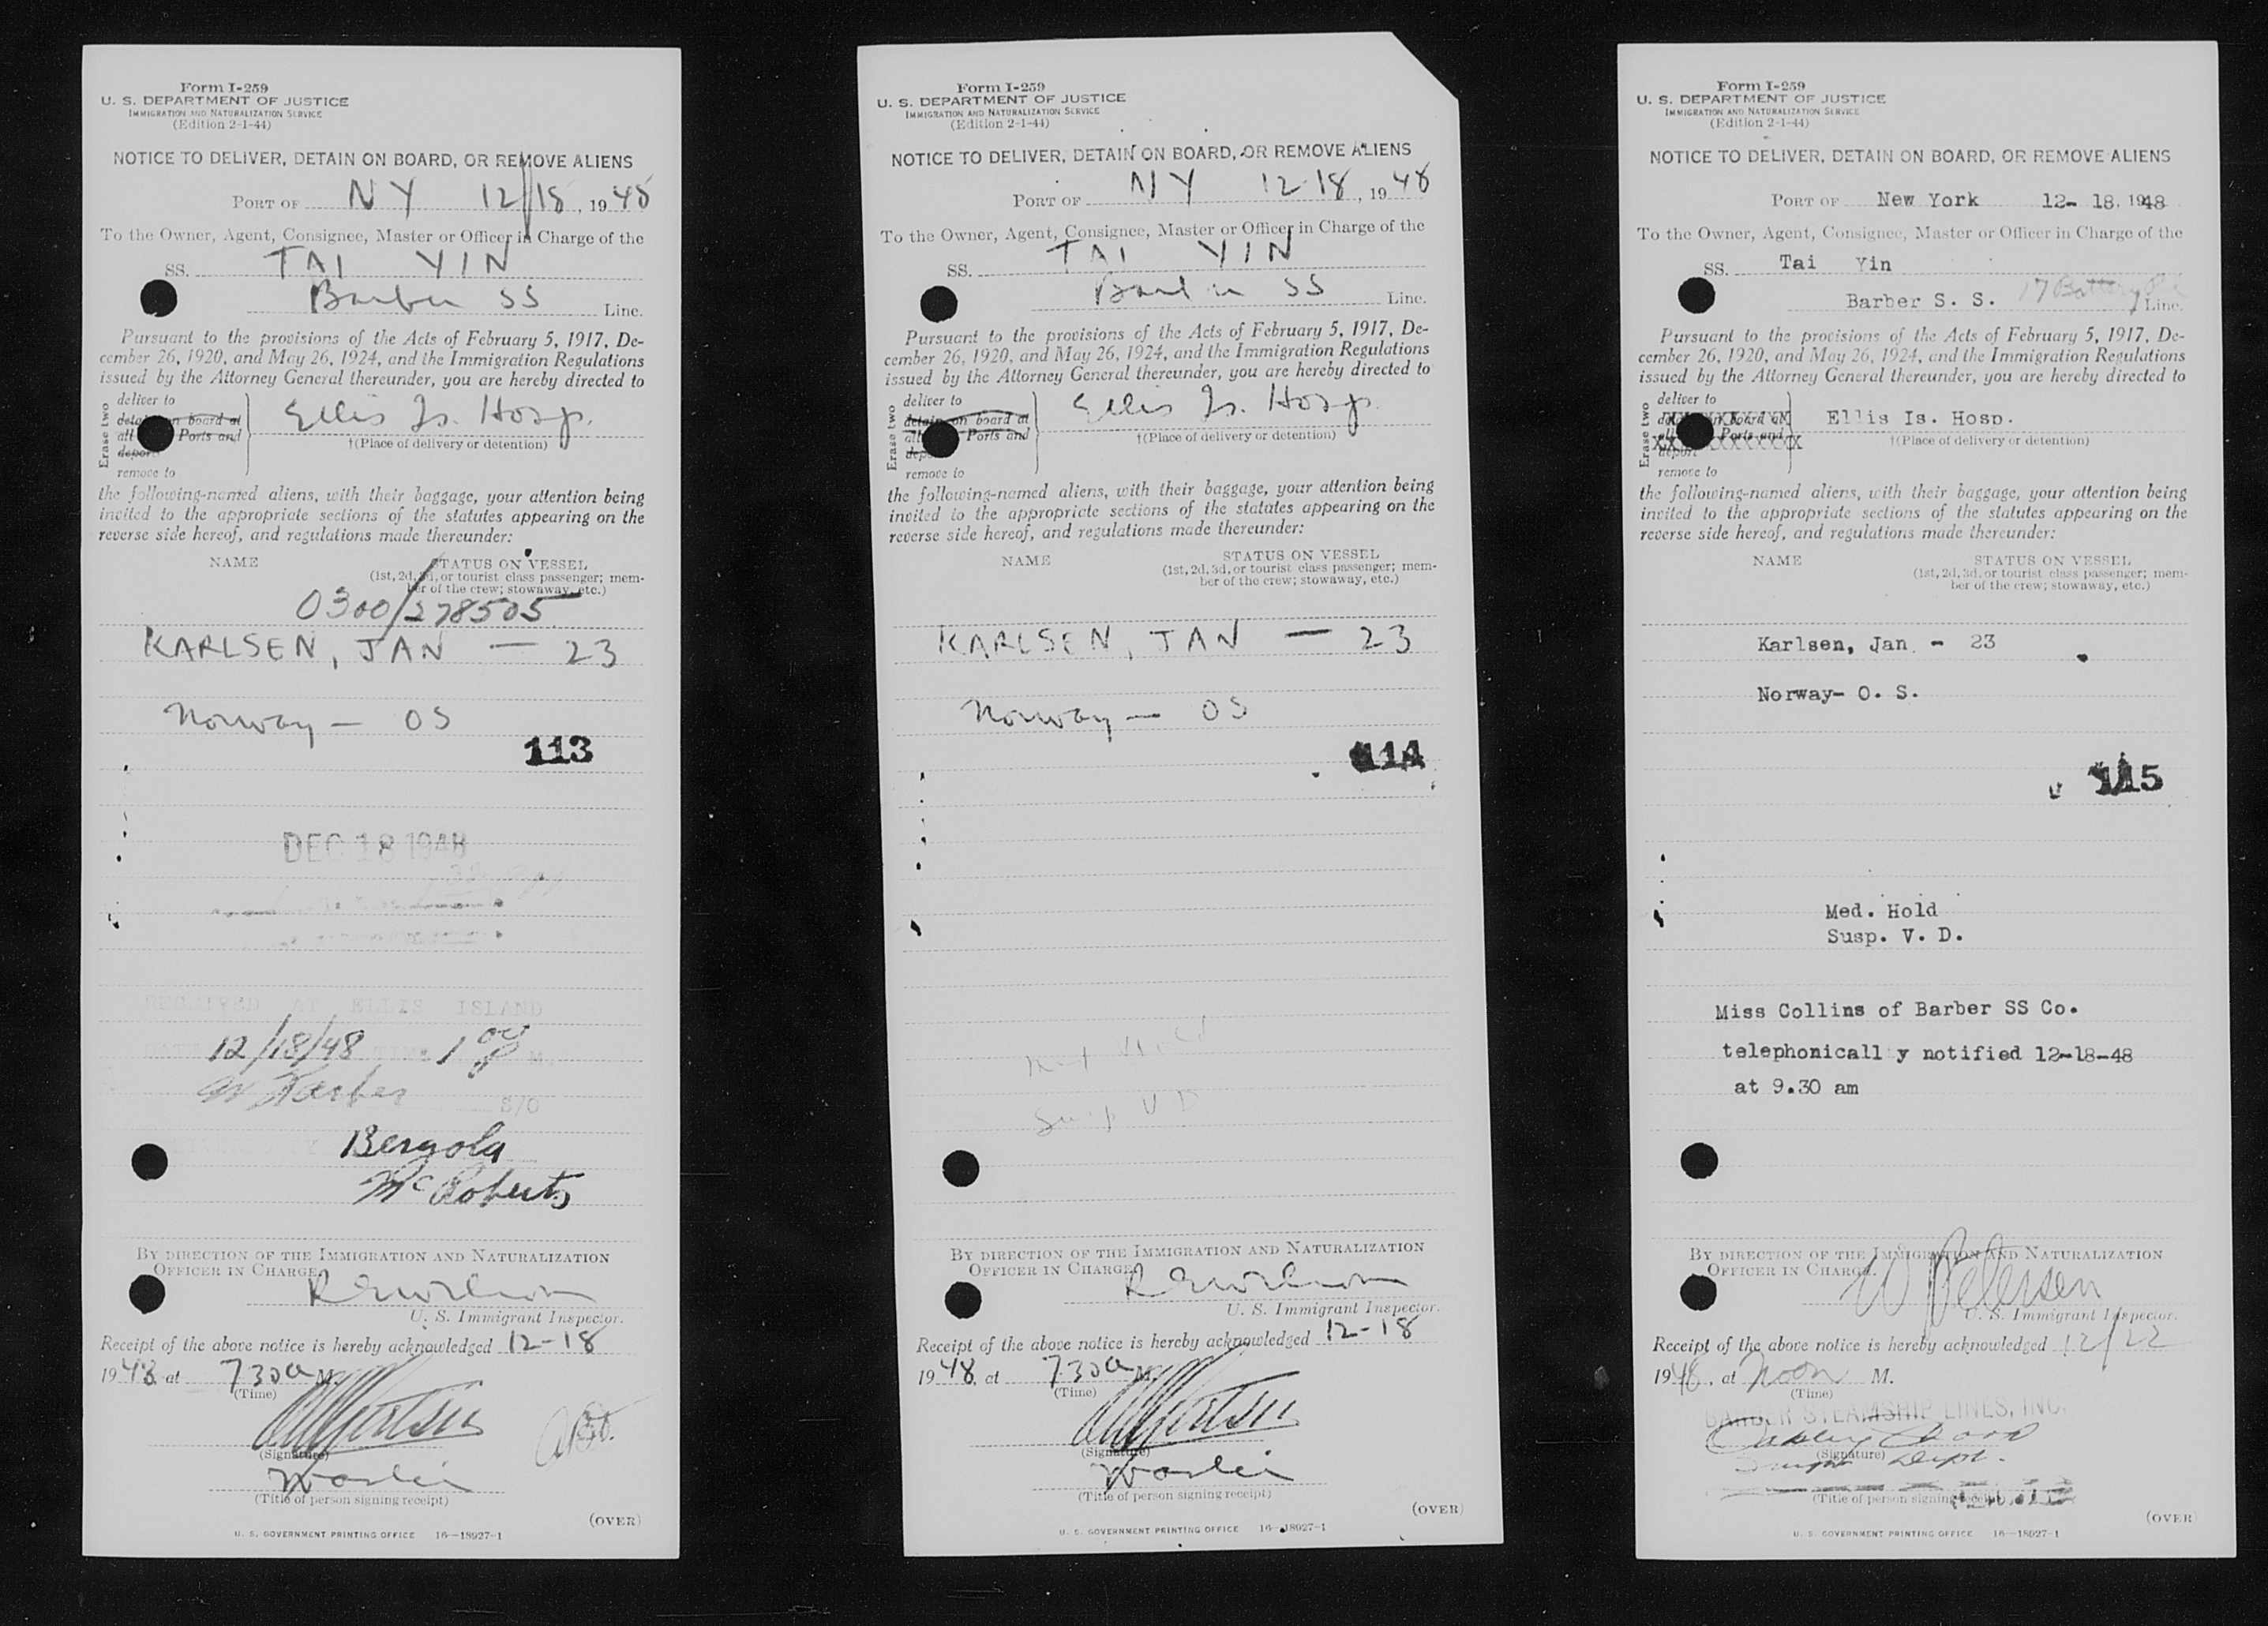 Form I-259
U. S. DEPARTMENT OF JUSTICE
IMMIGRATION AND NATURALIZATION SERVICE
(Edition 2-1-44)
NOTICE TO DELIVER, DETAIN ON BOARD, OR REMOVE ALIENS
PORT OF NY 12/18, 1948
To the Owner, Agent, Consignee, Master or Officer in Charge of the
SS. TAI YIN
Barber SS Line.
Pursuant to the provisions of the Acts of February 5, 1917, De-
cember 26, 1920, and May 26, 1924, and the Immigration Regulations
issued by the Attorney General thereunder, you are hereby directed to
Erase two
deliver to
detain on board at
all Ports and
deport
remove to
Ellis Is. Hosp.
†(Place of delivery or detention)
the following-named aliens, with their baggage, your attention being
invited to the appropriate sections of the statutes appearing on the
reverse side hereof, and regulations made thereunder:
NAME STATUS ON VESSEL
(1st, 2d, 3d, or tourist class passenger; mem-
ber of the crew; stowaway, etc.)
0300/278505
KARLSEN, JAN — 23
Norway — OS
113
DEC 18 1948
RECEIVED AT ELLIS ISLAND
12/18/48 1 00 P M.
S/O
Bergola
McRoberts
BY DIRECTION OF THE IMMIGRATION AND NATURALIZATION
OFFICER IN CHARGE.
U. S. Immigrant Inspector.
Receipt of the above notice is hereby acknowledged 12-18
1948. at 730a M.
(Time)
(Signature)
(Title of person signing receipt)
(OVER)
U. S. GOVERNMENT PRINTING OFFICE 16—18927-1
Form I-259
U. S. DEPARTMENT OF JUSTICE
IMMIGRATION AND NATURALIZATION SERVICE
(Edition 2-1-44)
NOTICE TO DELIVER, DETAIN ON BOARD, OR REMOVE ALIENS
PORT OF NY 12-18, 1948
To the Owner, Agent, Consignee, Master or Officer in Charge of the
SS. TAI YIN
Barber SS Line.
Pursuant to the provisions of the Acts of February 5, 1917, De-
cember 26, 1920, and May 26, 1924, and the Immigration Regulations
issued by the Attorney General thereunder, you are hereby directed to
Erase two
deliver to
detain on board at
all Ports and
deport
remove to
Ellis Is. Hosp.
†(Place of delivery or detention)
the following-named aliens, with their baggage, your attention being
invited to the appropriate sections of the statutes appearing on the
reverse side hereof, and regulations made thereunder:
NAME STATUS ON VESSEL
(1st, 2d, 3d, or tourist class passenger; mem-
ber of the crew; stowaway, etc.)
KARLSEN, JAN — 23
Norway — OS
114
Susp VD
BY DIRECTION OF THE IMMIGRATION AND NATURALIZATION
OFFICER IN CHARGE.
U. S. Immigrant Inspector.
Receipt of the above notice is hereby acknowledged 12-18
1948, at 730a M.
(Time)
(Signature)
(Title of person signing receipt)
(OVER)
U. S. GOVERNMENT PRINTING OFFICE 16—18927-1
Form I-259
U. S. DEPARTMENT OF JUSTICE
IMMIGRATION AND NATURALIZATION SERVICE
(Edition 2-1-44)
NOTICE TO DELIVER, DETAIN ON BOARD, OR REMOVE ALIENS
PORT OF New York 12- 18, 1948
To the Owner, Agent, Consignee, Master or Officer in Charge of the
SS. Tai Yin
Barber S. S. 17 Battery Pl Line.
Pursuant to the provisions of the Acts of February 5, 1917, De-
cember 26, 1920, and May 26, 1924, and the Immigration Regulations
issued by the Attorney General thereunder, you are hereby directed to
Erase two
deliver to
detain on board at
all Ports and
deport
remove to
Ellis Is. Hosp.
†(Place of delivery or detention)
the following-named aliens, with their baggage, your attention being
invited to the appropriate sections of the statutes appearing on the
reverse side hereof, and regulations made thereunder:
NAME STATUS ON VESSEL
(1st, 2d, 3d, or tourist class passenger; mem-
ber of the crew; stowaway, etc.)
Karlsen, Jan - 23
Norway- O. S.
115
Med. Hold
Susp. V. D.
Miss Collins of Barber SS Co.
telephonicall y notified 12-18-48
at 9.30 am
BY DIRECTION OF THE IMMIGRATION AND NATURALIZATION
OFFICER IN CHARGE.
W Petersen
U. S. Immigrant Inspector.
Receipt of the above notice is hereby acknowledged 12/22
1948, at Noon M.
(Time)
BARBER STEAMSHIP LINES, INC.
(Signature)
Dept.
(Title of person signing receipt)
(OVER)
U. S. GOVERNMENT PRINTING OFFICE 16—18927-1